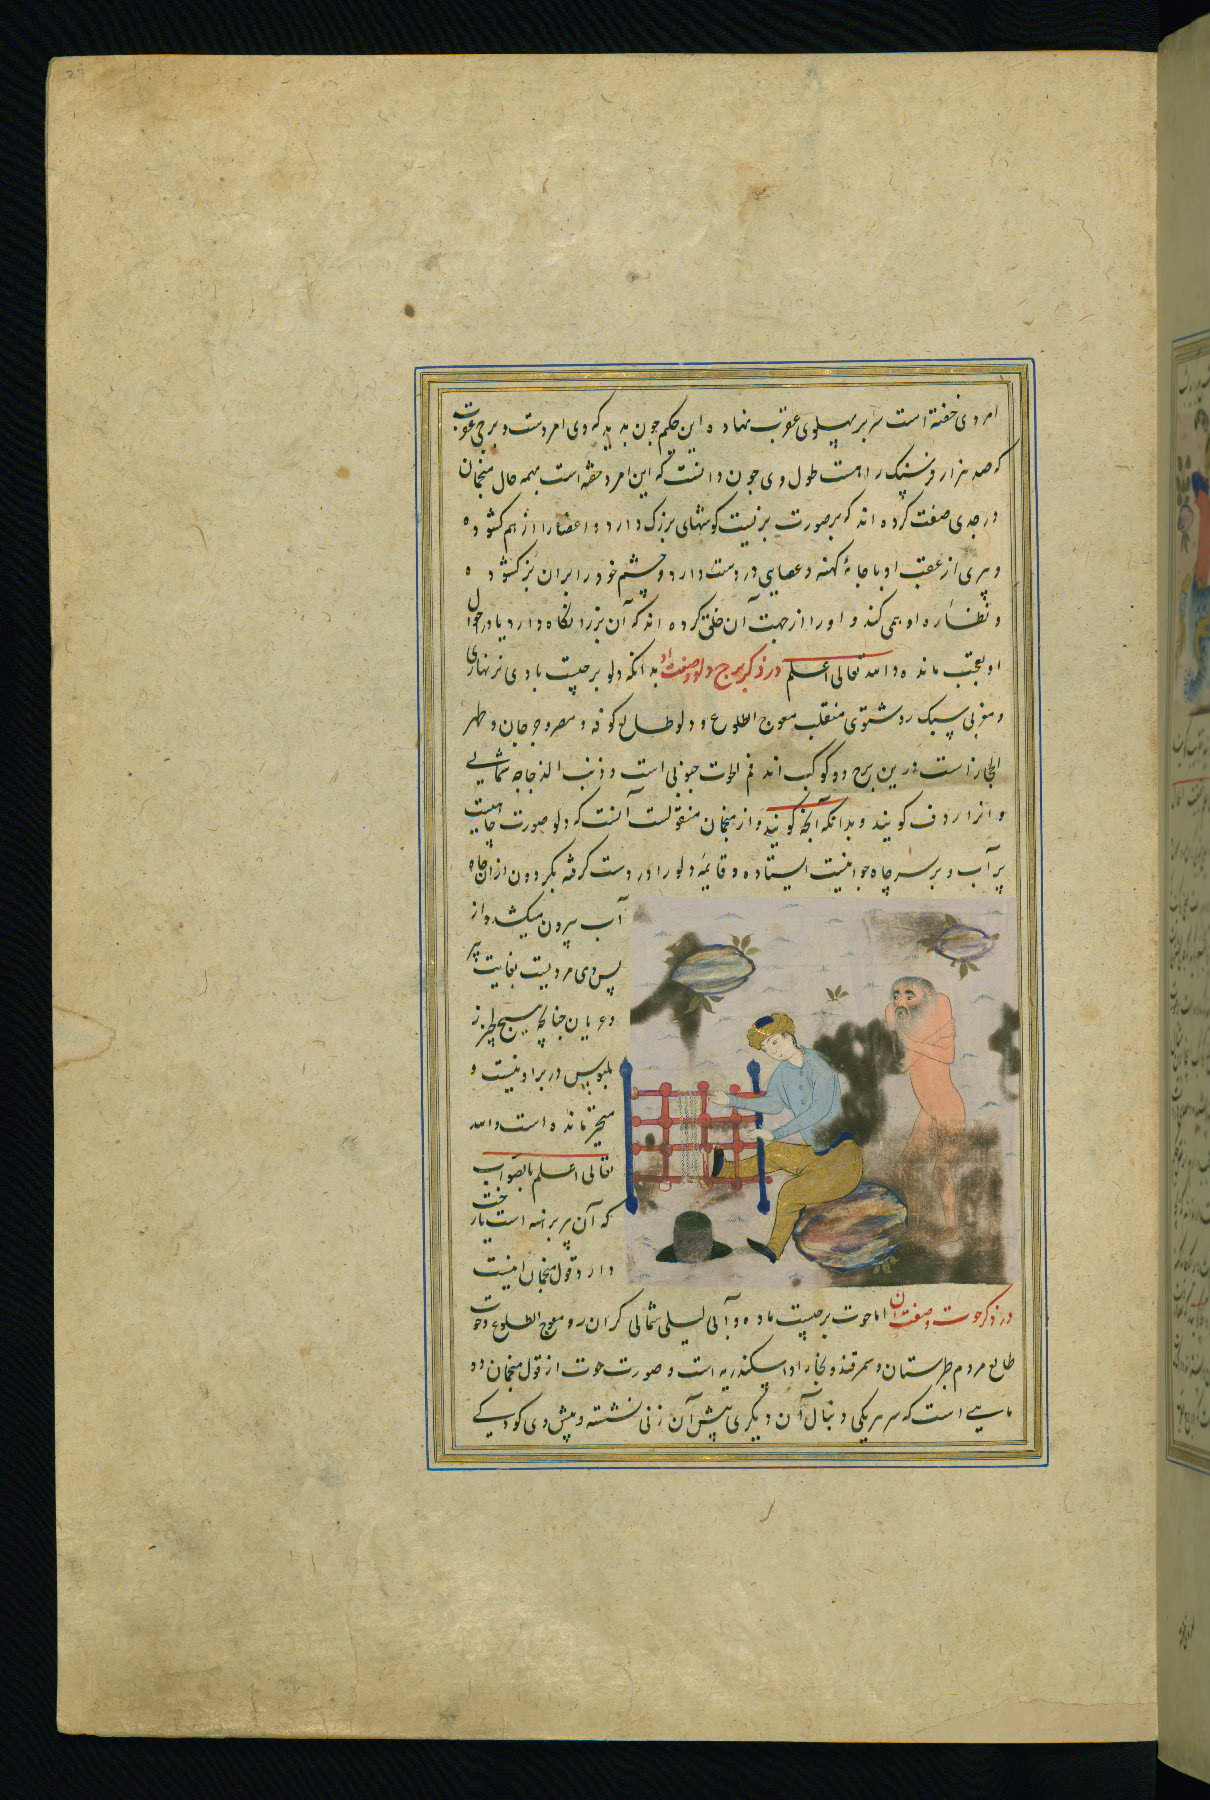 امردی خفته است سر بر پهلوی عقرب نهاده این حکیم چون بدید که وی امردست و برج عقرب
که صد هزار فرسنک راهست طول وی چون دانست که این امرد خفته است بهمه حال منجمان
در جدی صفت کرده اند که بر صورت بزیست کوشهای بزرک دارد و اعضا را از هم کشوده
و پیری از عقب او با جامۀ کهنه و عصایی در دست دارد و چشم خود را بر آن بز کشوده
و نظاره او همی کند و او را از جهت آن خلق کرده اند که آن بز را نکاه دارد یا در احوال
او بعجب مانده والله تعالی اعلم در ذکر برج دلو و صفت او بدانکه دلو برجیست بادی نر نهاری
و مغربی سبک رو شتوی منقلب معوج الطلوع و دلو طالع کوفه و مصر و جرجان و ظهر
الحجازاست درین برج دو کوکب اند فم الحوت جنوبی است و ذنب الدجاجه شمالی
و آنرا ردف کویند و بدانکه آنچه کویند و از منجمان منقولست آنست که دلو صورت چاهیست
پر آب و بر سر چاه جوانیست ایستاده و قایمۀ دلو را در دست کرفته بکردون از آن چاه
آب بیرون میکشد و از
پس وی مردیست بغایت پیر
و عریان چنانچه هیچ چیز از
ملبوس در بر او نیست و
متحیر مانده است والله
تعالی اعلم بالصواب
که آن پیر برهنه است یا رخت
دارد قول منجمان اینست
در ذکر حوت و صفت آن اما حوت برجیست ماده و آبی لیلی شمالی کران رو معوج الطلوع و حوت
طالع مردم طبرستان و سمرقند و بخارا و اسکندریه است و صورت حوت از قول منجمان دو
ماهیی است که سر یکی دنبال آن دیکری پیش آن زنی نشسته و پیش وی کودکی